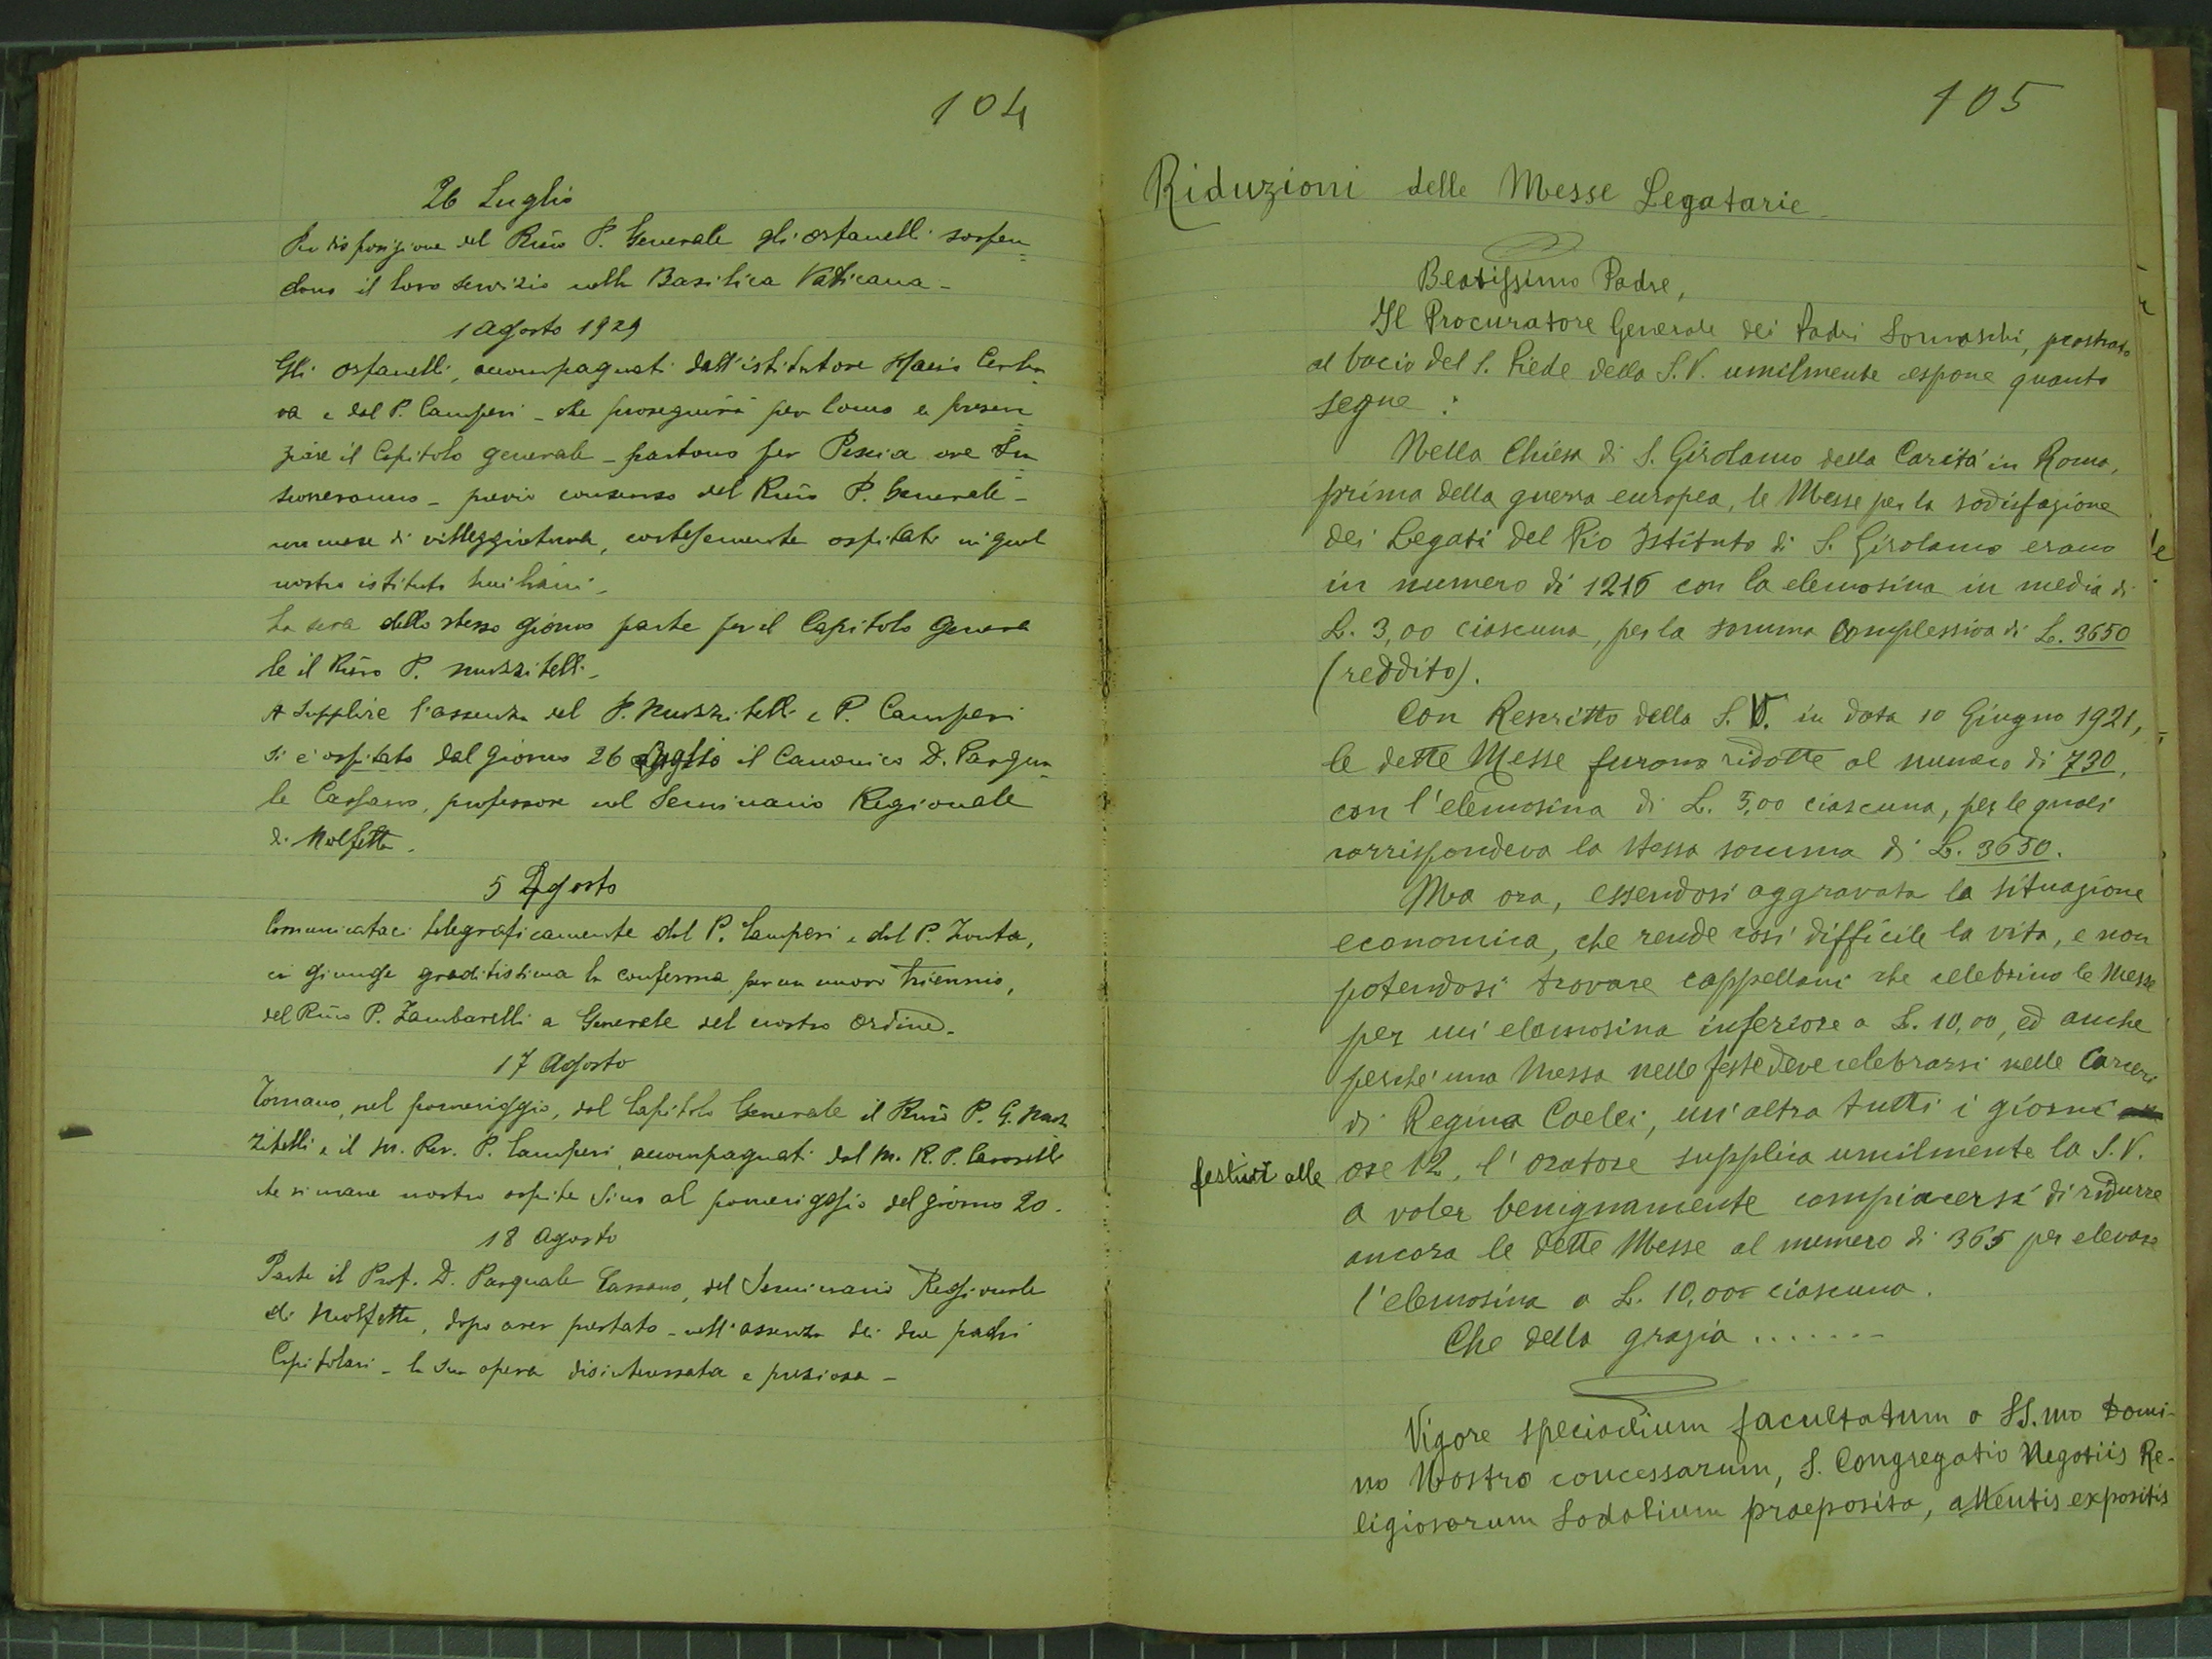 104
26 Luglio
Per disposizione del Rm̃o P. Generale gli orfanelli sospen=
dono il loro servizio nella Basilica Vaticana -
1 agosto 1929
Gli orfanelli, accompagnati dall'istitutore
e dal P. Camperi - che proseguirà per Como a presen=
ziare il Capitolo generale - partono per Pescia ove
- previo consenso del Rm̃o P. Generale -
un mese di villeggiatura, cortesemente ospitati in quel
nostro istituto
La sera dello stesso giorno parte per il Capitolo Genera
le il Rm̃o P. Muzzitelli -
A supplire l'assenza del P. Muzzitelli e P. Camperi
si è ospitato dal giorno 26 Luglio il Canonico D. Pasqua=
le Cassano, professore nel Seminario Regionale
di Molfetta.
5 Agosto
Comunicataci telegraficamente dal P. Camperi e dal P. Zonta,
ci giunge graditissima la conferma, per un nuovo triennio,
del Rm̃o P. Zambarelli a Generale del nostro Ordine -
17 Agosto
Tornano, nel pomeriggio, dal Capitolo Generale il Rm̃o P. G. Muz
zitelli e il M. Rev. P. Camperi, accompagnati dal M. R. P.
che rimane nostro ospite sino al pomeriggio del giorno 20.
18 Agosto
Parte il Prof. D. Pasquale Cassano, del Seminario Regionale
di Molfetta, dopo aver prestato - nell'assenza dei due padri
Capitolari - la sua opera disinteressata e preziosa -
105
Riduzioni delle Messe Legatarie
Beatissimo Padre,
Il Procuratore Generale dei Padri Somaschi, prostrato
al bacio del S. Piede della S. V. umilmente espone quanto
segue :
Nella Chiesa di S. Girolamo della Carità in Roma,
prima della guerra europea, le Messe per la sodisfazione
dei Legati del Pio Istituto di S. Girolamo erano
in numero di 1216 con la elemosina in media di
L. 3,00 ciascuna, per la somma complessiva di L. 3650
(reddito).
Con Rescritto della S. V. in data 10 Giugno 1921,
le dette Messe furono ridotte al numero di 730,
con l'elemosina di L. 5,00 ciascuna, per le quali
corrispondeva la stessa somma di L. 3650.
Ma ora, essendosi aggravata la situazione
economica, che rende così difficile la vita, e non
potendosi trovare cappellani che celebrino le Messe
per un'elemosina inferiore a L. 10,00, ed anche
perchè una Messa nelle feste deve celebrarsi nelle Carceri
di Regina Coelei, un'altra tutti i giorni
festivi alle ore 12, l'oratore supplica umilmente la S. V.
a voler benignamente compiacersi di ridurre
ancora le dette Messe al numero di 365 per elevare
l'elemosina a L. 10,00 ciascuna.
Che della grazia .......
Vigore specialium facultatum a SS.mo Domi-
no Nostro concessarum, S. Congregatio Negotiis Re-
ligiosorum Sodalium praeposita, attentis expositis